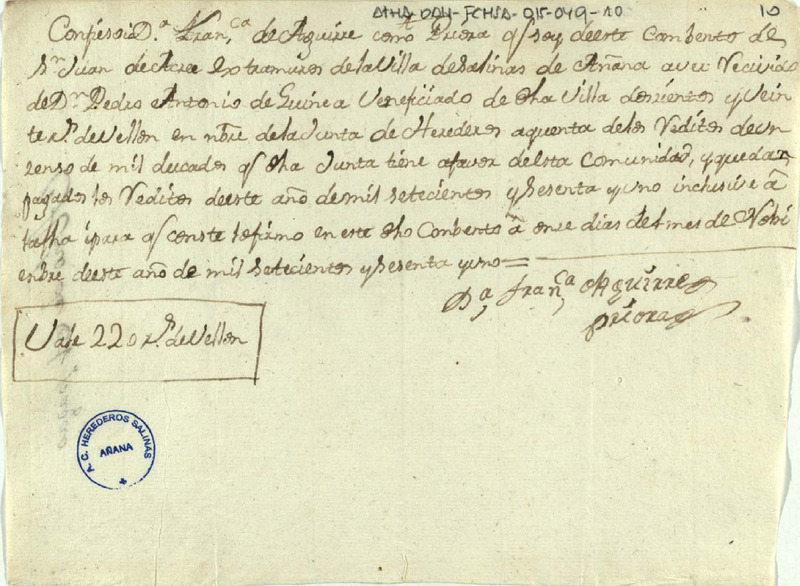 ATHA-DAH-FCHSA-015-049-10
10
Confieso io D.ª Fran,ca de Aguirre como Priora q soy de este Combento de
Sn Juan de Acre extramuros de la Villa de Salinas de Añana aver Recivido
de Dn Pedro Antonio de Guinea Veneficiado de dha Villa doscientos y vein
te rs. de vellon en nbre de la Junta de Herederos a quenta de los Reditos de un
zenso de mil ducados q dha Junta tiene a favor de esta Comunidad, y quedan
pagados los Reditos de este año de mil setecientos y sesenta y uno inclusive a
la fha i para q conste lo firmo en este dho Conbento a onze dias del mes de Nobi
enbre de este año de mil setecientos y sesenta y uno =
D.ª Fran,ca Aguirre
priora
Vale 220 rs. de Vellon
A. C. HEREDEROS SALINAS
AÑANA